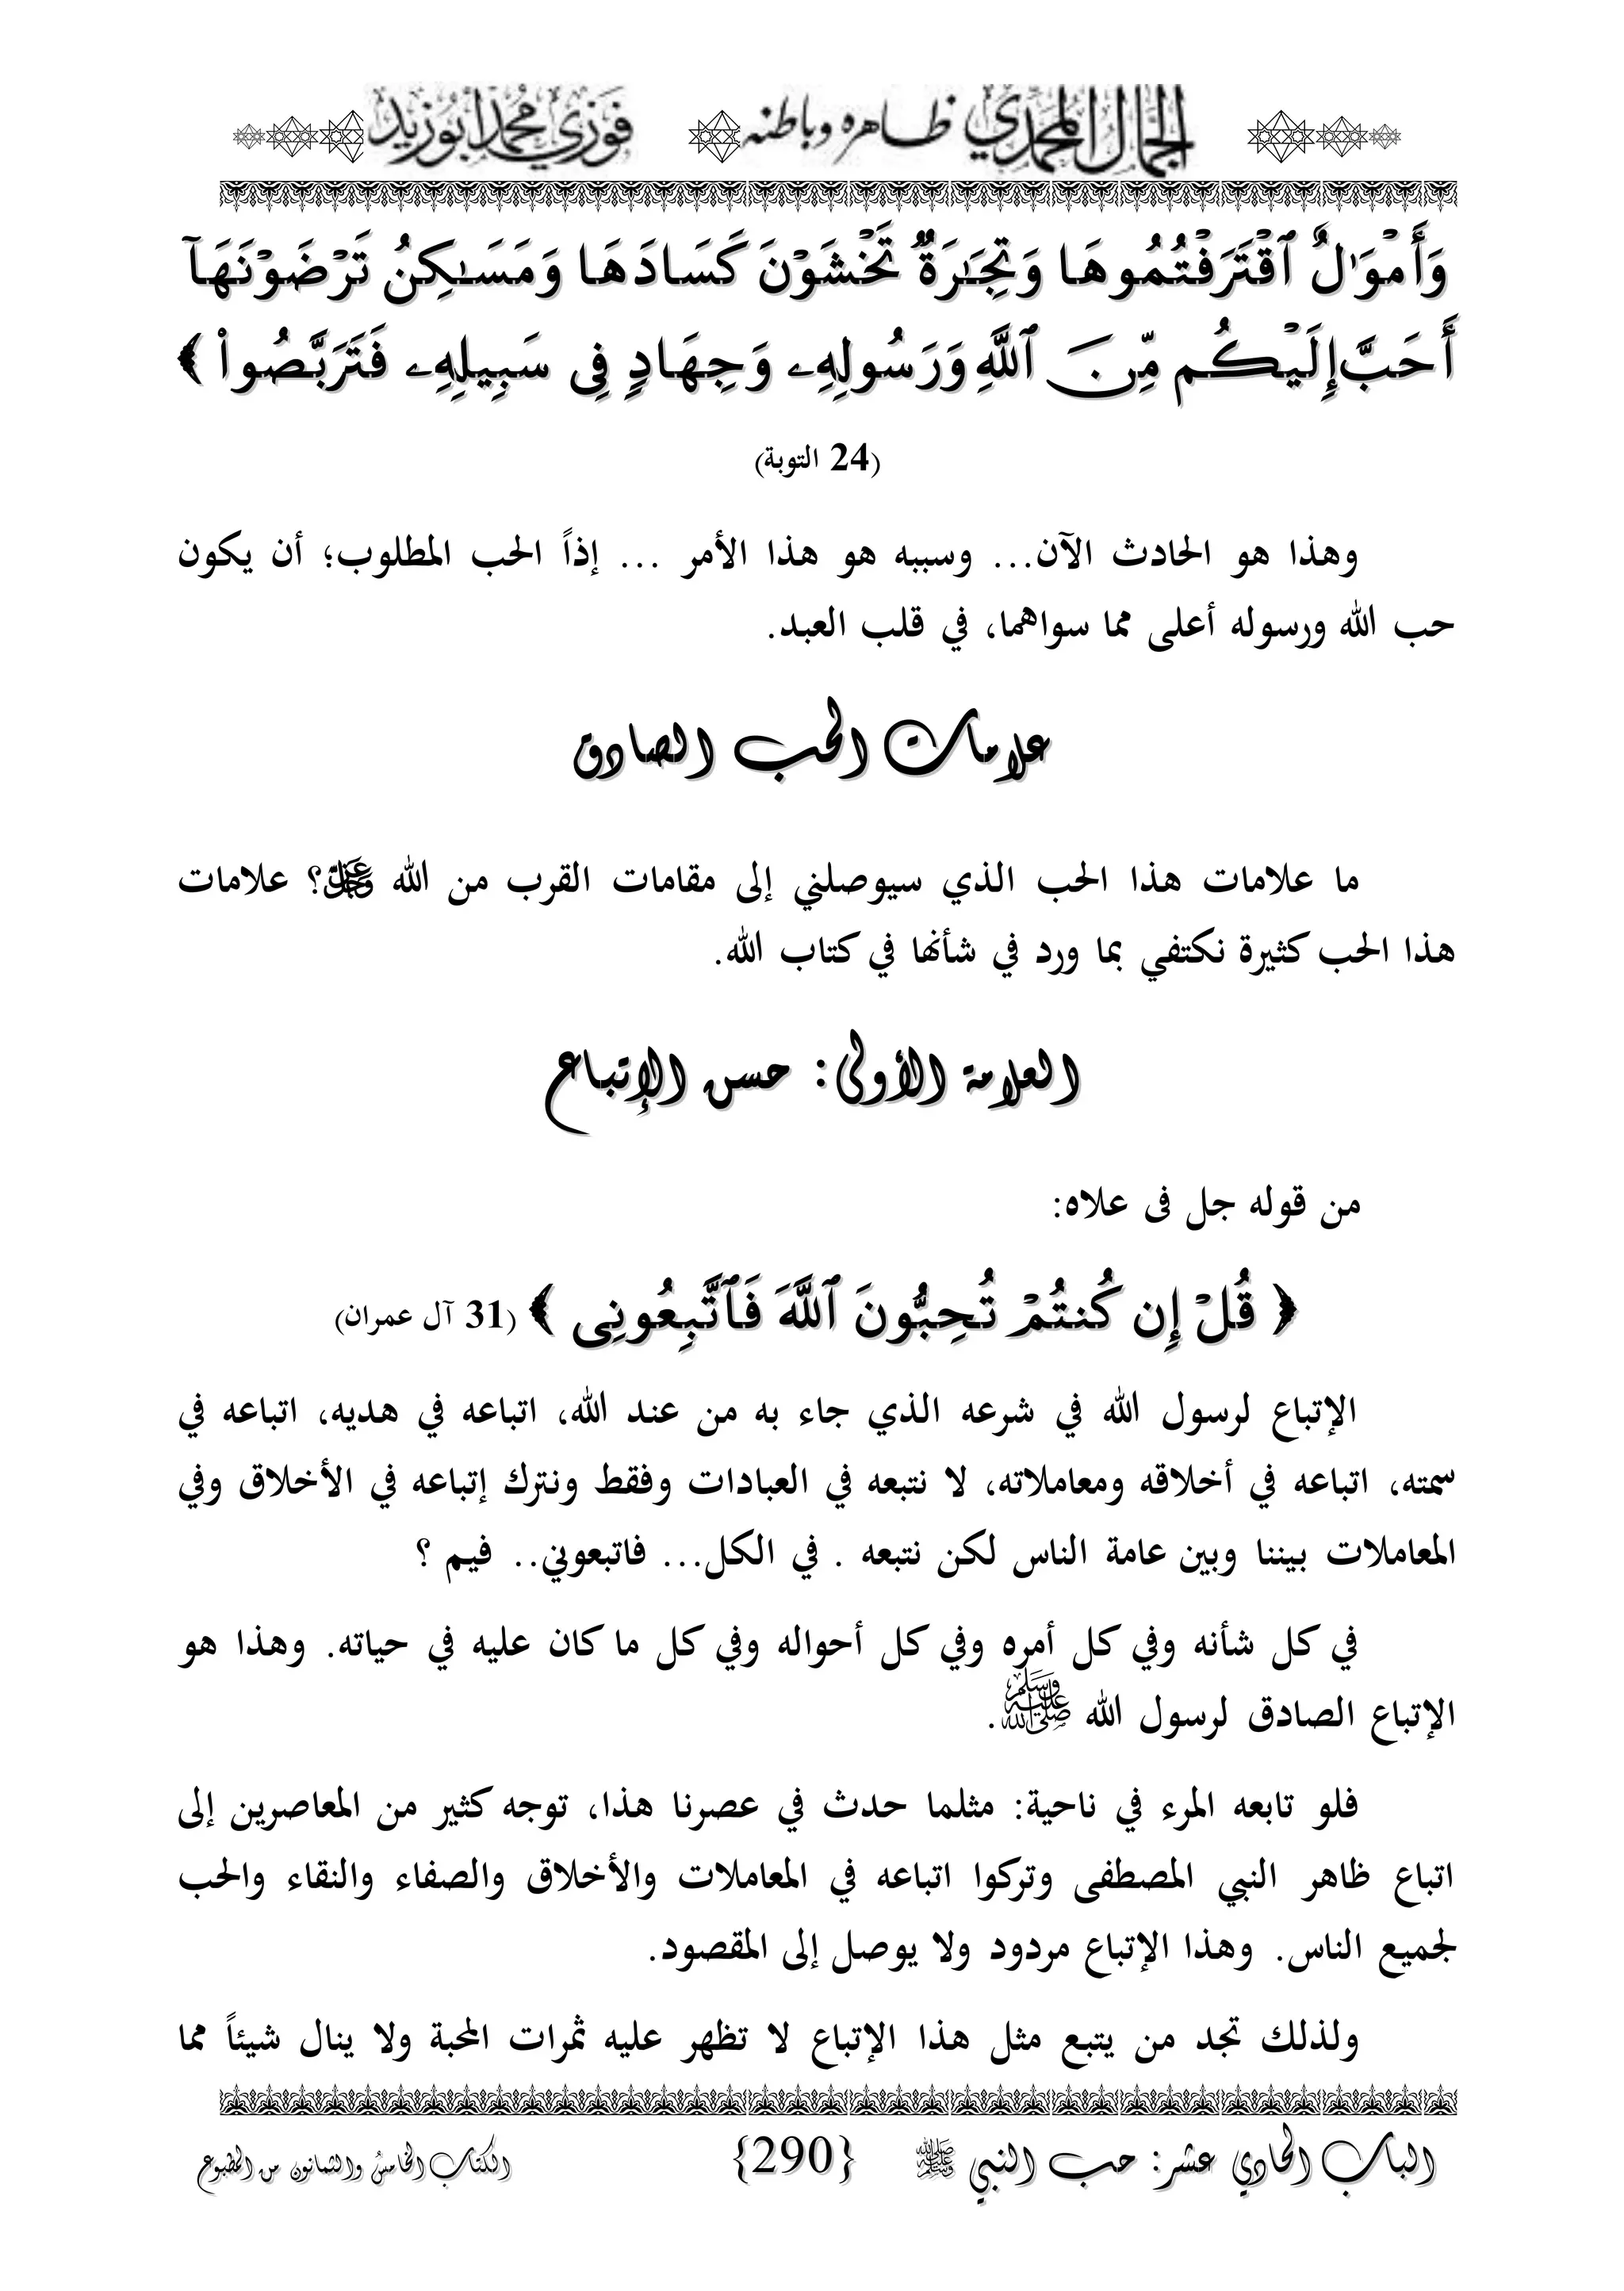 الجمال المحمدي ظاهره وباطنه فوزي محمد أبوزيد
وَأَمْوَٰلٌ ٱقْتَرَفْتُمُوهَا وَتِجَٰرَةٌ تَخْشَوْنَ كَسَادَهَا وَمَسَٰكِنُ تَرْضَوْنَهَآ
أَحَبَّ إِلَيْكُم مِّنَ ٱللَّهِ وَرَسُولِهِۦ وَجِهَادٍ فِى سَبِيلِهِۦ فَتَرَبَّصُوا۟ ﴾
(24 التوبة)
وهذا هو الحادث الآن... وسببه هو هذا الأمر ... إذاً الحب المطلوب؛ أن يكون
حب الله ورسوله أعلى مما سواهما، في قلب العبد.
علامات الحب الصادق
ما علامات هذا الحب الذي سيوصلني إلى مقامات القرب من الله عز وجل؟ علامات
هذا الحب كثيرة نكتفي بما ورد في شأنها في كتاب الله.
العلامة الأولى: حسن الإتباع
من قوله جل فى علاه:
﴿ قُلْ إِن كُنتُمْ تُحِبُّونَ ٱللَّهَ فَٱتَّبِعُونِى ﴾ (31 آل عمران)
الإتباع لرسول الله في شرعه الذي جاء به من عند الله، اتباعه في هديه، اتباعه في
سمته، اتباعه في أخلاقه ومعاملاته، لا نتبعه في العبادات وفقط ونترك إتباعه في الأخلاق وفي
المعاملات بيننا وبين عامة الناس لكن نتبعه . في الكل... فاتبعوني.. فيم ؟
في كل شأنه وفي كل أمره وفي كل أحواله وفي كل ما كان عليه في حياته. وهذا هو
الإتباع الصادق لرسول الله ﷺ.
فلو تابعه المرء في ناحية: مثلما حدث في عصرنا هذا، توجه كثير من المعاصرين إلى
اتباع ظاهر النبي المصطفى وتركوا اتباعه في المعاملات والأخلاق والصفاء والنقاء والحب
لجميع الناس. وهذا الإتباع مردود ولا يوصل إلى المقصود.
ولذلك تجد من يتبع مثل هذا الإتباع لا تظهر عليه ثمرات المحبة ولا ينال شيئاً مما
الباب الحادي عشر: حب النبي ﷺ {290} الكتاب الخامس والثمانون من المطبوع